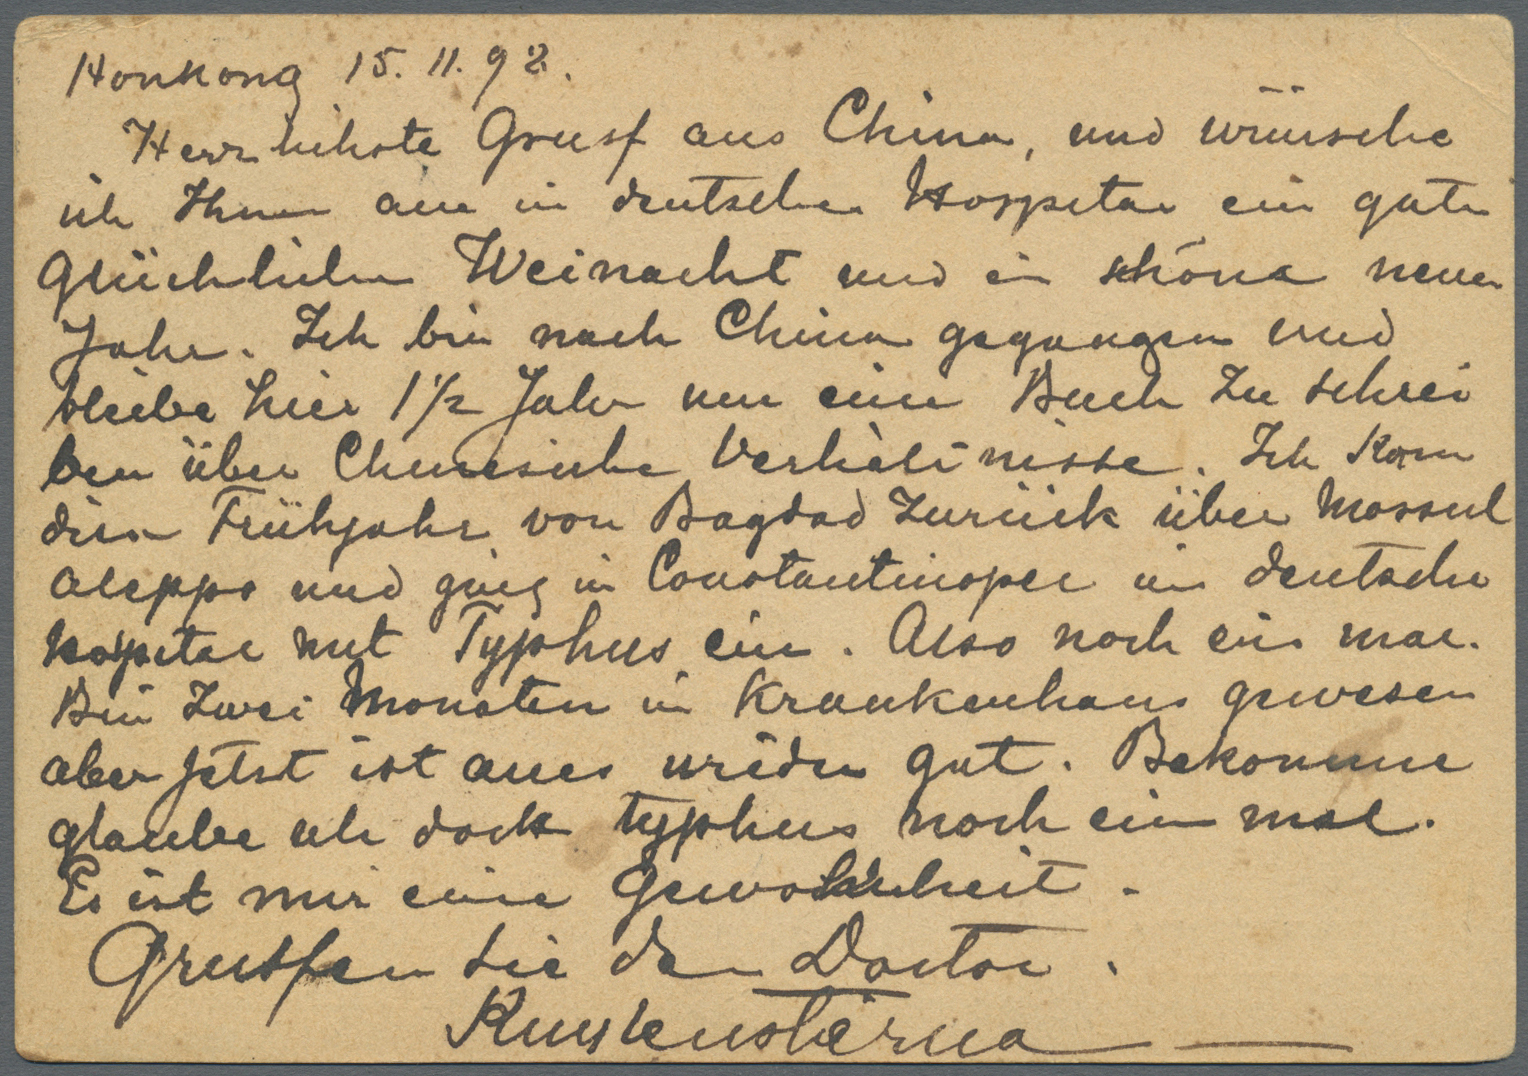 Honkong 15. 11. 92.
Herzlichste Gruss aus China, und wünsche
ich Ihnen alle in deutschen Hospital ein gute
Glücklichen Weinacht und ein schöna neues
Jahr. Ich bin nach China gegangen und
bleibe hier 1 1/2 Jahr um eine Buch zu schrei
ben über Chinesische Verhältnisse. Ich kam
diese Frühjahr von Bagdad Zurück über Mossul
Aleppo und ging in Constantinopel in deutsche
hospital mit Typhus ein. Also noch ein mal.
Bin zwei Monaten in Krankenhaus gewesen
aber Jetst ist alles wieder gut. Bekomme
glaube ich doch typhus noch ein mal.
Es ist mir eine Gewohnheit.
Grussen sie den Doctor.